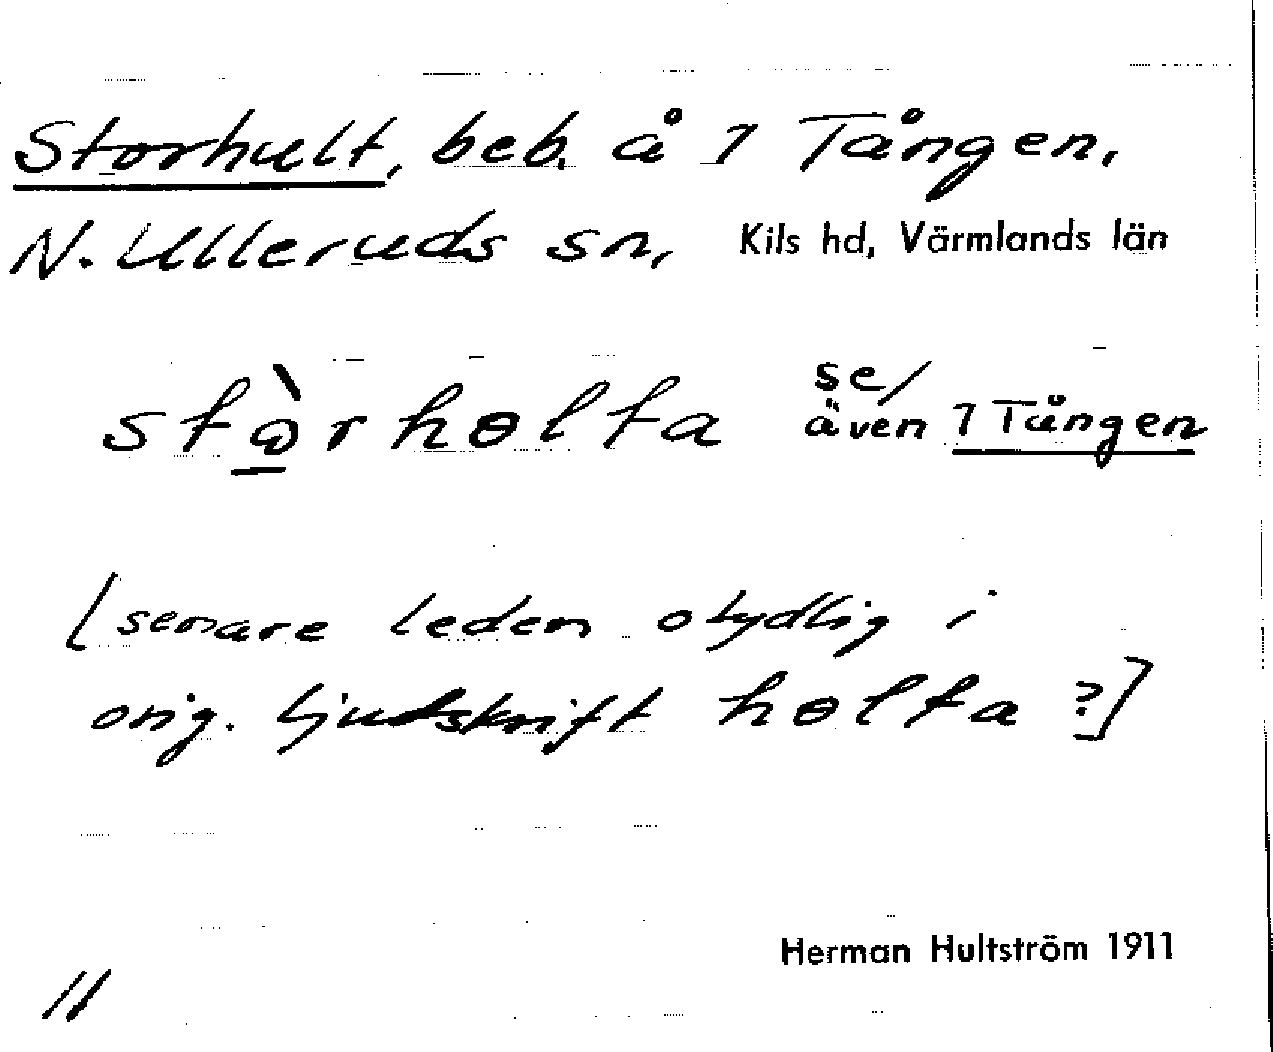 Storhult, beb. å 1 Tången,
N. Ulleruds sn, Kils hd, Värmlands län
stòrhɵlta se/
även 1 Tången
[senare leden otydlig i
orig. ljudskrift hɵlta ?]
Herman Hultström 1911
11